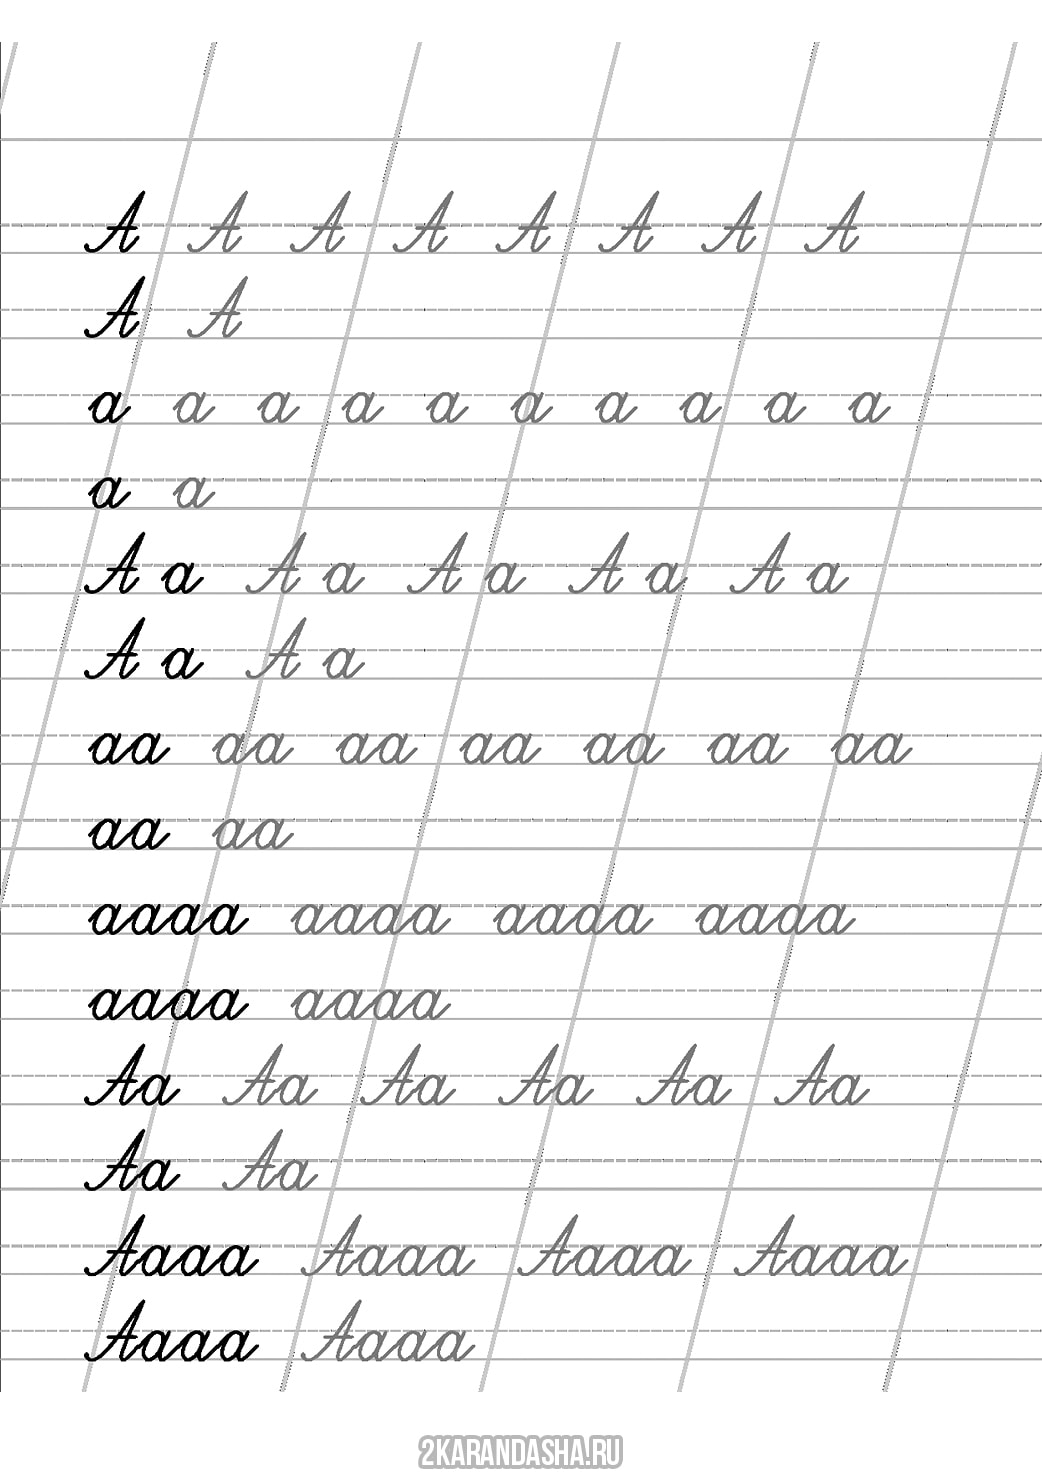 А А А А А А А А
А А
а а а а а а а а а а
а а
А а А а А а А а А а
А а А а
аа аа аа аа аа аа аа
аа аа
аааа аааа аааа аааа
аааа аааа
Аа Аа Аа Аа Аа Аа
Аа Аа
Аааа Аааа Аааа Аааа
Аааа Аааа
2KARANDASHA.RU